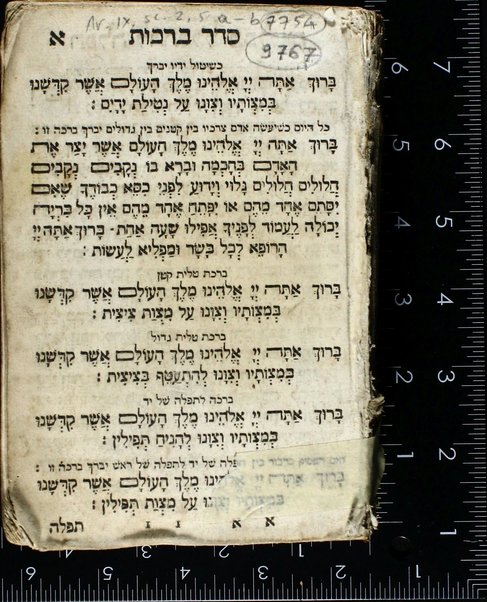 Ar. IX, sc. 2, 5 a-b 7754
9767
סדר ברכות א
כשיטול ידיו יברך
בָּרוּךְ אַתָּה יְיָ אֱלֹהֵינוּ מֶלֶךְ הָעוֹלָם אֲשֶׁר קִדְּשָׁנוּ
בְּמִצְוֹתָיו וְצִוָּנוּ עַל נְטִילַת יָדָיִם :
כל היום כשיעשה אדם צרכיו בין קטנים בין גדולים יברך ברכה זו :
בָּרוּךְ אַתָּה יְיָ אֱלֹהֵינוּ מֶלֶךְ הָעוֹלָם אֲשֶׁר יָצַר אֶת
הָאָדָם בְּחָכְמָה וּבָרָא בוֹ נְקָבִים נְקָבִים
חֲלוּלִים חֲלוּלִים גָּלוּי וְיָדוּעַ לִפְנֵי כִסֵּא כְבוֹדֶךָ שֶׁאִם
יִסָּתֵם אֶחָד מֵהֶם אוֹ יִפָּתֵחַ אֶחָד מֵהֶם אֵין כָּל בְּרִיָּה
יְכוֹלָה לַעֲמוֹד לְפָנֶיךָ אֲפִילוּ שָׁעָה אַחַת׃ בָּרוּךְ אַתָּה יְיָ
הָרוֹפֵא לְכָל בָּשָׂר וּמַפְלִיא לַעֲשׂוֹת :
ברכת טלית קטן
בָּרוּךְ אַתָּה יְיָ אֱלֹהֵינוּ מֶלֶךְ הָעוֹלָם אֲשֶׁר קִדְּשָׁנוּ
בְּמִצְוֹתָיו וְצִוָּנוּ עַל מִצְוַת צִיצִית :
ברכת טלית גדול
בָּרוּךְ אַתָּה יְיָ אֱלֹהֵינוּ מֶלֶךְ הָעוֹלָם אֲשֶׁר קִדְּשָׁנוּ
בְּמִצְוֹתָיו וְצִוָּנוּ לְהִתְעַטֵּף בְּצִיצִית :
ברכה לתפלה של יד
בָּרוּךְ אַתָּה יְיָ אֱלֹהֵינוּ מֶלֶךְ הָעוֹלָם אֲשֶׁר קִדְּשָׁנוּ
בְּמִצְוֹתָיו וְצִוָּנוּ לְהָנִיחַ תְּפִילִין :
של יד לתפלה של ראש יברך ברכה זו :
בָּרוּךְ אַתָּה יְיָ אֱלֹהֵינוּ מֶלֶךְ הָעוֹלָם אֲשֶׁר קִדְּשָׁנוּ
עַל מִצְוַת תְּפִילִין :
א א תפלה
7 6 5 4 3 2 1
6 5 4 3 2 1
6 5 4 3 2 1
1 2